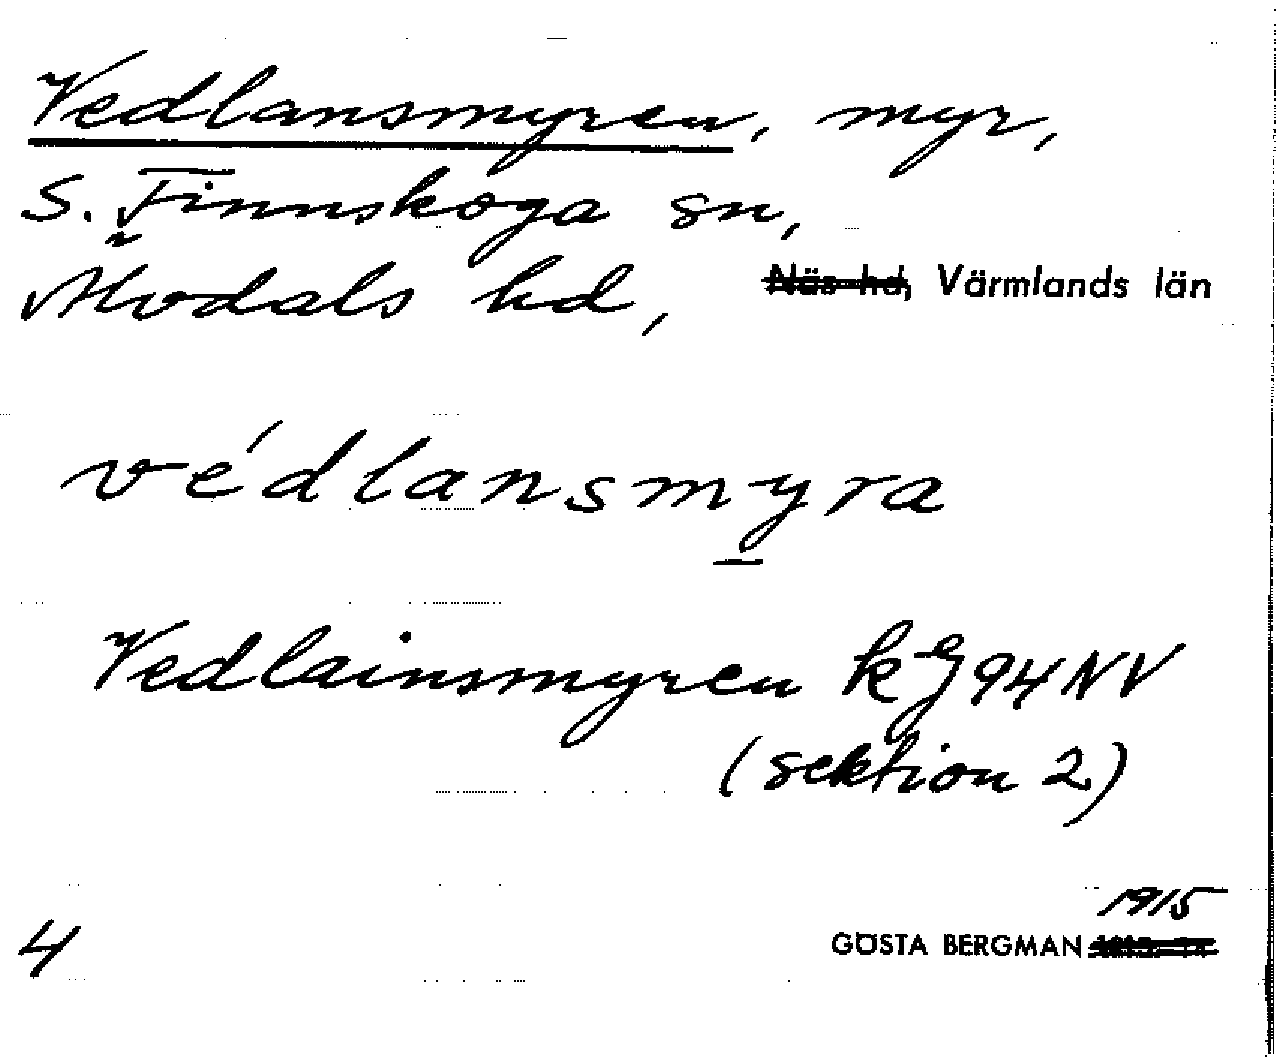 Vedlansmyren, myr,
S. Finnskoga sn,
Älvdals hd, Näs hd, Värmlands län
védlansmyra
Vedlainsmyren kg 94 NV
(sektion 2)
1915
4 GÖSTA BERGMAN